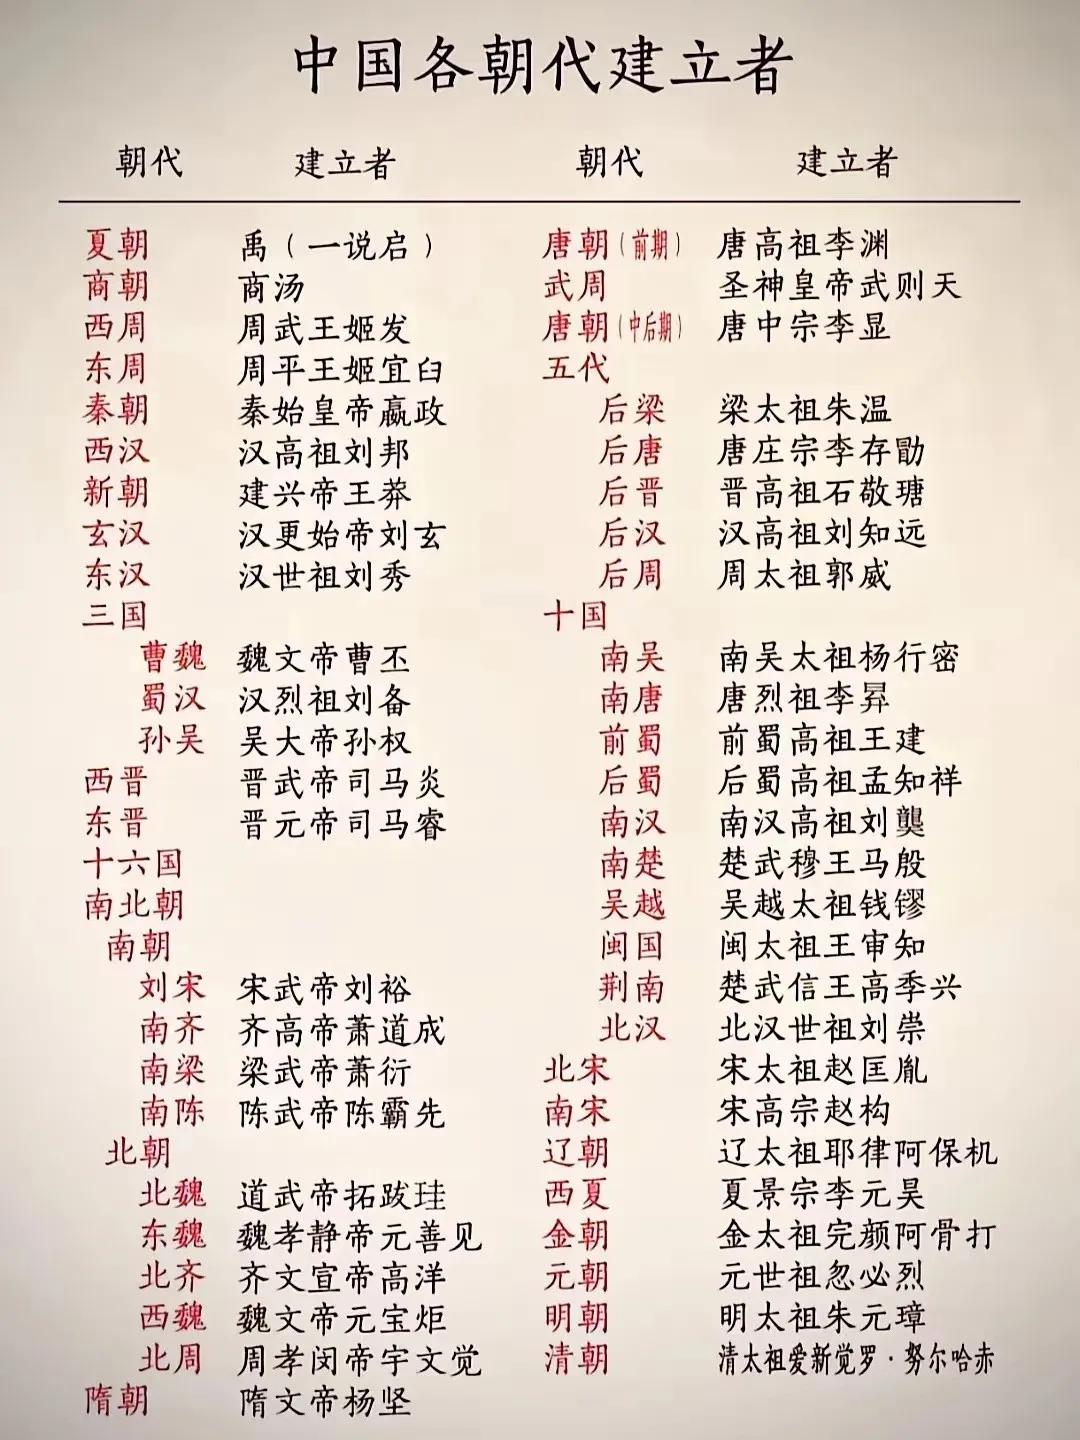 中国各朝代建立者
朝代 建立者
夏朝 禹（一说启）
商朝 商汤
西周 周武王姬发
东周 周平王姬宜臼
秦朝 秦始皇帝嬴政
西汉 汉高祖刘邦
新朝 建兴帝王莽
玄汉 汉更始帝刘玄
东汉 汉世祖刘秀
三国
曹魏 魏文帝曹丕
蜀汉 汉烈祖刘备
孙吴 吴大帝孙权
西晋 晋武帝司马炎
东晋 晋元帝司马睿
十六国
南北朝
南朝
刘宋 宋武帝刘裕
南齐 齐高帝萧道成
南梁 梁武帝萧衍
南陈 陈武帝陈霸先
北朝
北魏 道武帝拓跋珪
东魏 魏孝静帝元善见
北齐 齐文宣帝高洋
西魏 魏文帝元宝炬
北周 周孝闵帝宇文觉
隋朝 隋文帝杨坚
朝代 建立者
唐朝（前期） 唐高祖李渊
武周 圣神皇帝武则天
唐朝（中后期） 唐中宗李显
五代
后梁 梁太祖朱温
后唐 唐庄宗李存勖
后晋 晋高祖石敬瑭
后汉 汉高祖刘知远
后周 周太祖郭威
十国
南吴 南吴太祖杨行密
南唐 唐烈祖李昪
前蜀 前蜀高祖王建
后蜀 后蜀高祖孟知祥
南汉 南汉高祖刘龑
南楚 楚武穆王马殷
吴越 吴越太祖钱镠
闽国 闽太祖王审知
荆南 楚武信王高季兴
北汉 北汉世祖刘崇
北宋 宋太祖赵匡胤
南宋 宋高宗赵构
辽朝 辽太祖耶律阿保机
西夏 夏景宗李元昊
金朝 金太祖完颜阿骨打
元朝 元世祖忽必烈
明朝 明太祖朱元璋
清朝 清太祖爱新觉罗·努尔哈赤